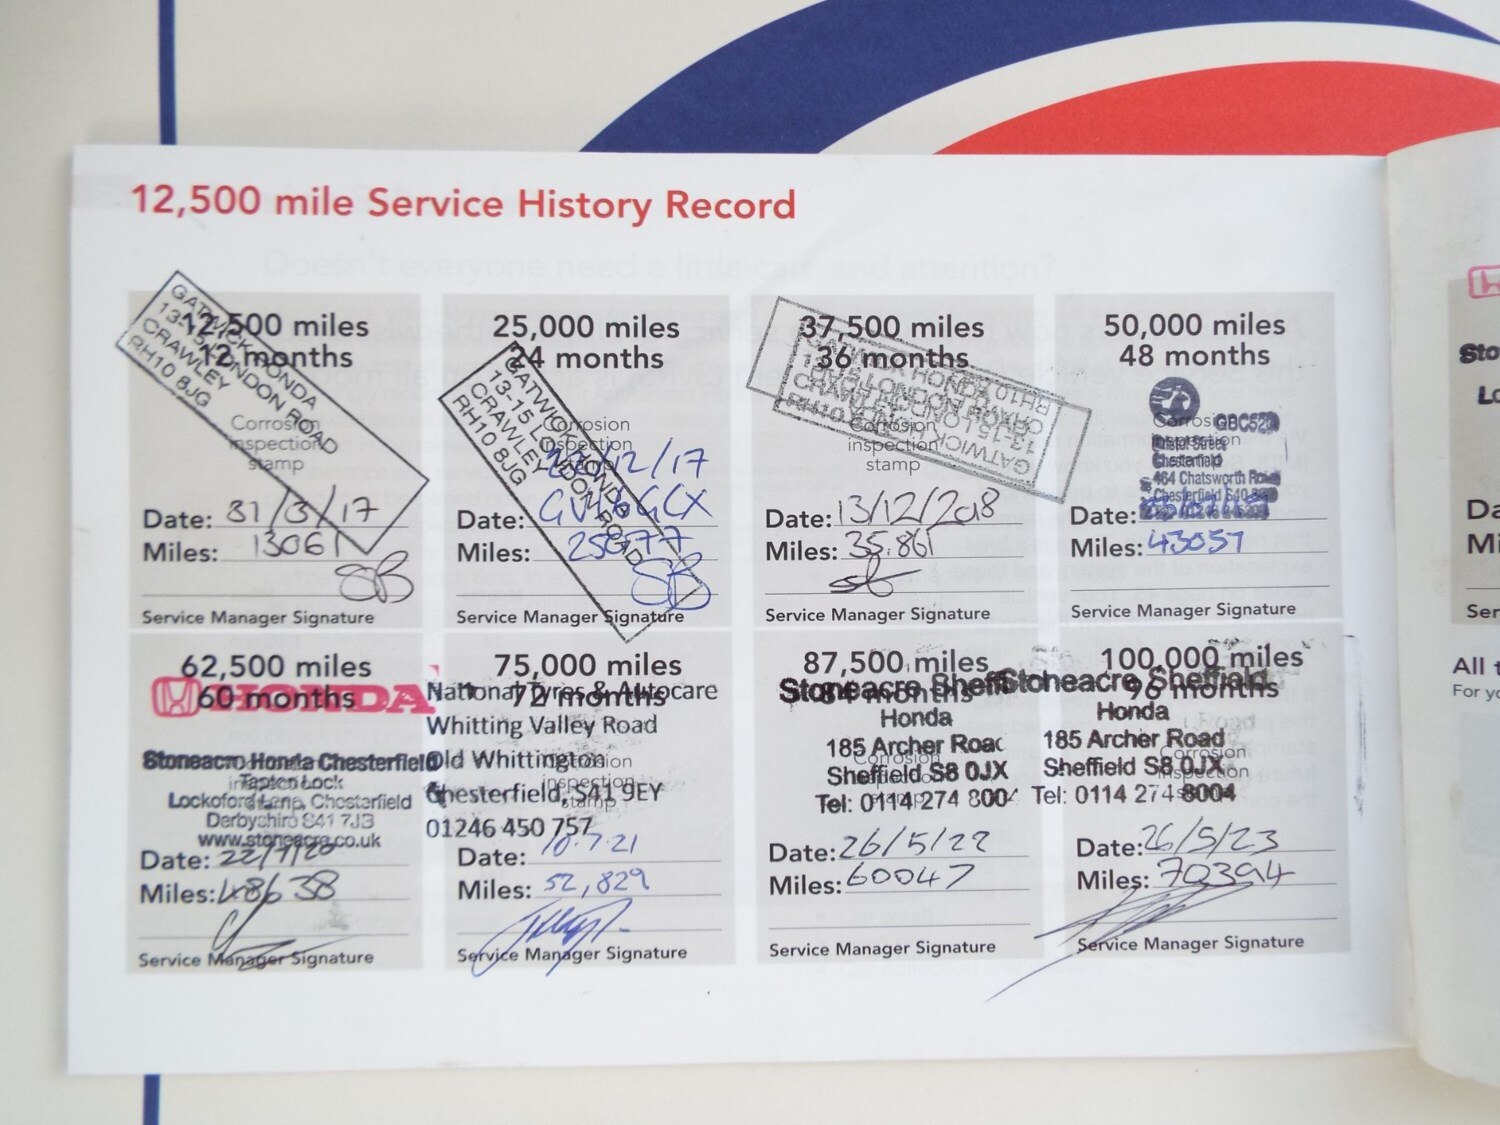 12,500 mile Service History Record
12,500 miles
12 months
GATWICK HONDA
13-15 LONDON ROAD
CRAWLEY
RH10 8JG
Corrosion
inspection
stamp
Date: 31/3/17
Miles: 13061
SB
Service Manager Signature
25,000 miles
24 months
GATWICK HONDA
13-15 LONDON ROAD
CRAWLEY
RH10 8JG
Corrosion
inspection
/12/17
Date:
Miles:
SB
Service Manager Signature
37,500 miles
36 months
GATWICK
13-15 LONDON
RH10
Corrosion
inspection
stamp
Date: 13/12/2018
Miles: 35.861
Service Manager Signature
50,000 miles
48 months
Corrosion
inspection
Street
Chesterfield
464 Chatsworth Road
Chesterfield S40
Date:
Miles: 43057
Service Manager Signature
62,500 miles
60 months
HONDA
Stoneacre Honda Chesterfield
Tapton Lock
Lockoford Lane, Chesterfield
Derbyshire S41 7JB
www.stoneacre.co.uk
Date: 22/7/20
Miles: 48638
Service Manager Signature
75,000 miles
72 months
National Tyres & Autocare
Whitting Valley Road
Old Whittington
Corrosion
inspection
stamp
Chesterfield, S41 9EY
01246 450 757
Date: 10.7.21
Miles: 52,829
Service Manager Signature
87,500 miles
84 months
Stoneacre Sheffield
Honda
185 Archer Road
Sheffield S8 0JX
Tel: 0114 274 8004
Date: 26/5/22
Miles: 60047
Service Manager Signature
100,000 miles
96 months
Stoneacre Sheffield
Honda
185 Archer Road
Corrosion
Sheffield S8 0JX
inspection
Tel: 0114 274 8004
Date: 26/5/23
Miles: 70394
Service Manager Signature
All
For